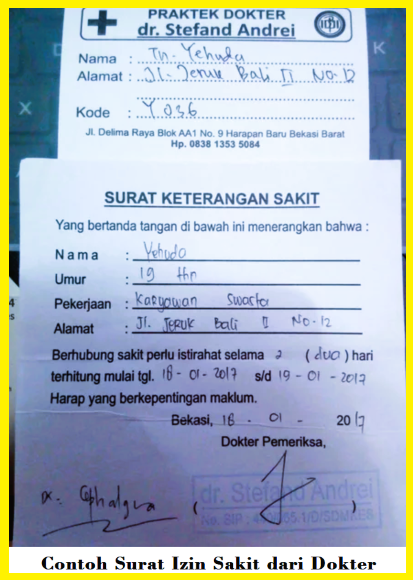 PRAKTEK DOKTER
dr. Stefand Andrei
Nama : Tn. Yehuda
Alamat : Jl. Jeruk Bali II No-12
Kode : Y 036
Jl. Delima Raya Blok AA1 No. 9 Harapan Baru Bekasi Barat
Hp. 0838 1353 5084
SURAT KETERANGAN SAKIT
Yang bertanda tangan di bawah ini menerangkan bahwa :
Nama : Yehuda
Umur : 19 thn
Pekerjaan : Karyawan Swasta
Alamat : Jl. Jeruk Bali II No-12
Berhubung sakit perlu istirahat selama 2 ( dua ) hari
terhitung mulai tgl. 18-01-2017 s/d 19-01-2017
Harap yang berkepentingan maklum.
Bekasi, 18 - 01 - 2017
Dokter Pemeriksa,
dr. Stefand Andrei
( )
No. SIP :
Contoh Surat Izin Sakit dari Dokter